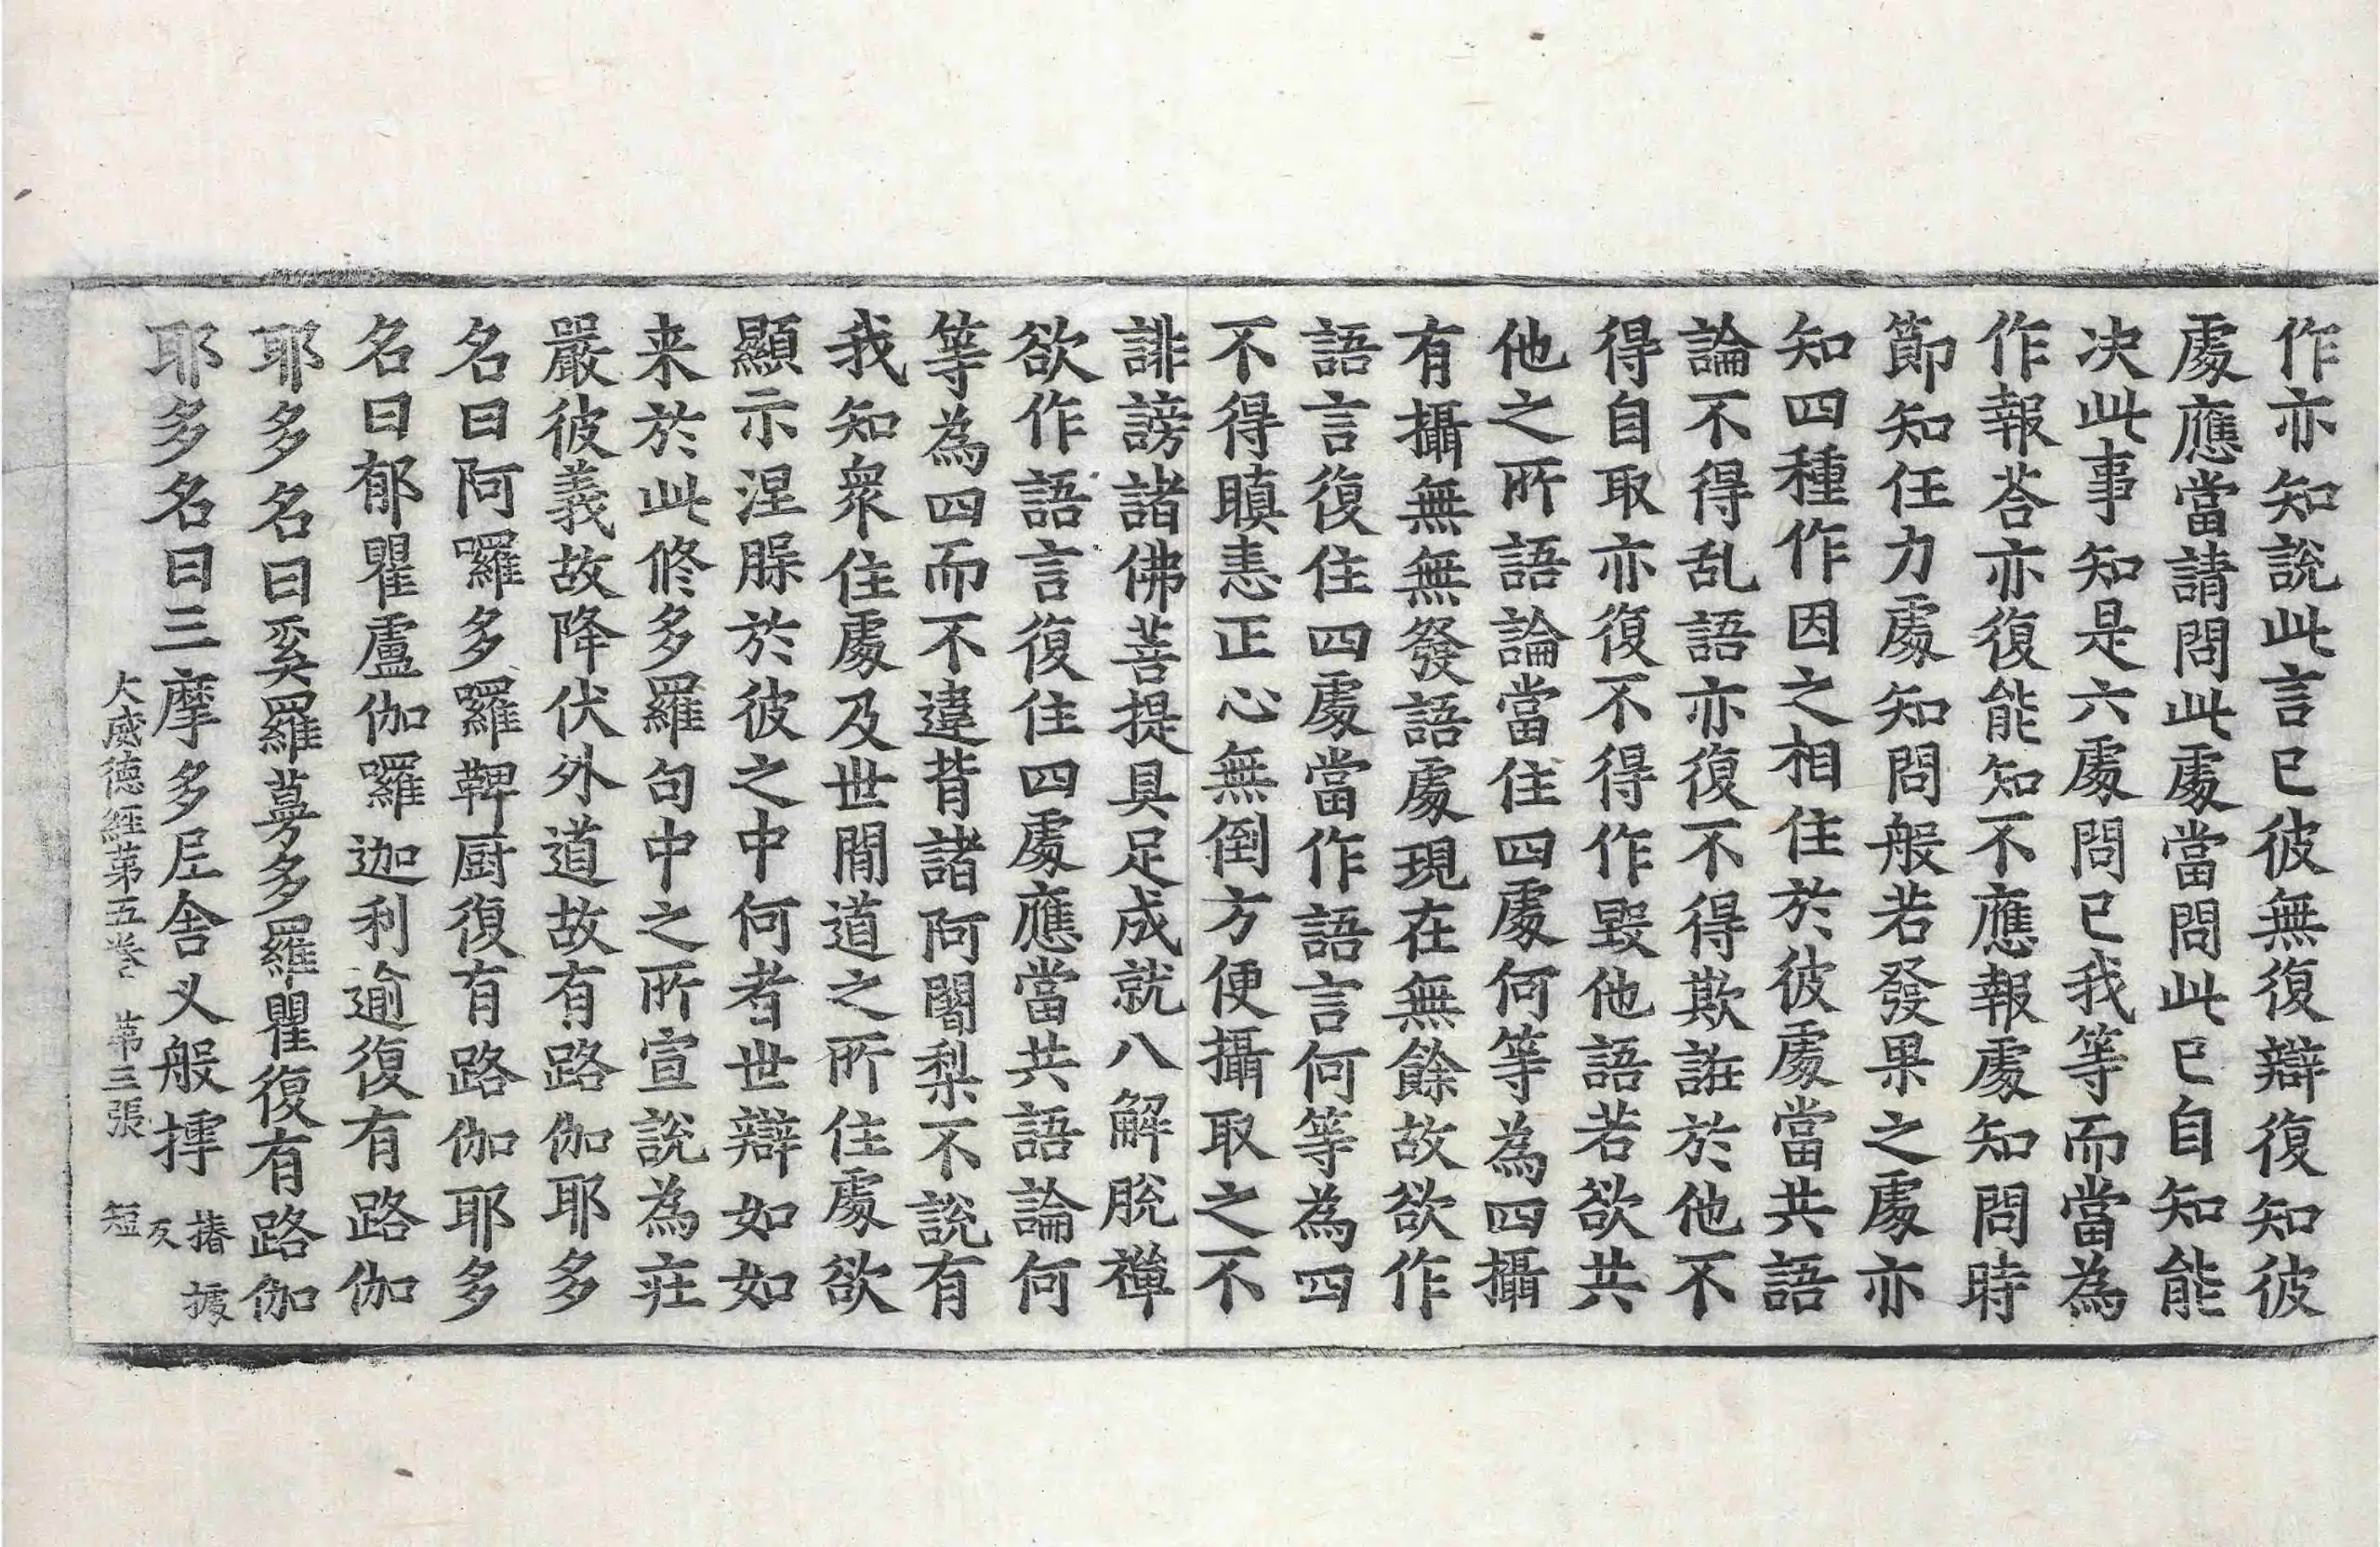 作亦知說此言已彼無復辯復知彼
處應當請問此處當問此已自知能
决此事知是六處問已我等而當為
作報荅亦復能知不應報處知問時
節知任力處知問般若發果之處亦
知四種作因之相住於彼處當共語
論不得乱語亦復不得欺誑於他不
得自取亦復不得作毀他語若欲共
他之所語論當住四處何等為四攝
有攝無無發語處現在無餘故欲作
語言復住四處當作語言何等為四
不得瞋恚正心無倒方便攝取之不
誹謗諸佛菩提具足成就八解脫禪
欲作語言復住四處應當共語論何
等為四而不違背諸阿闍梨不說有
我知衆住處及世間道之所住處欲
顯示涅脲於彼之中何者世辯如如
来於此修多羅句中之所宣說為莊
嚴彼義故降伏外道故有路伽耶多
名曰阿囉多囉鞞厨復有路伽耶多
名曰郁瞿盧伽囉迦利逾復有路伽
耶多名曰奚羅蒪多羅瞿復有路伽
耶多名曰三摩多𡰱舎乂般摢 揍攄反
大威德經第五卷 第三張 短